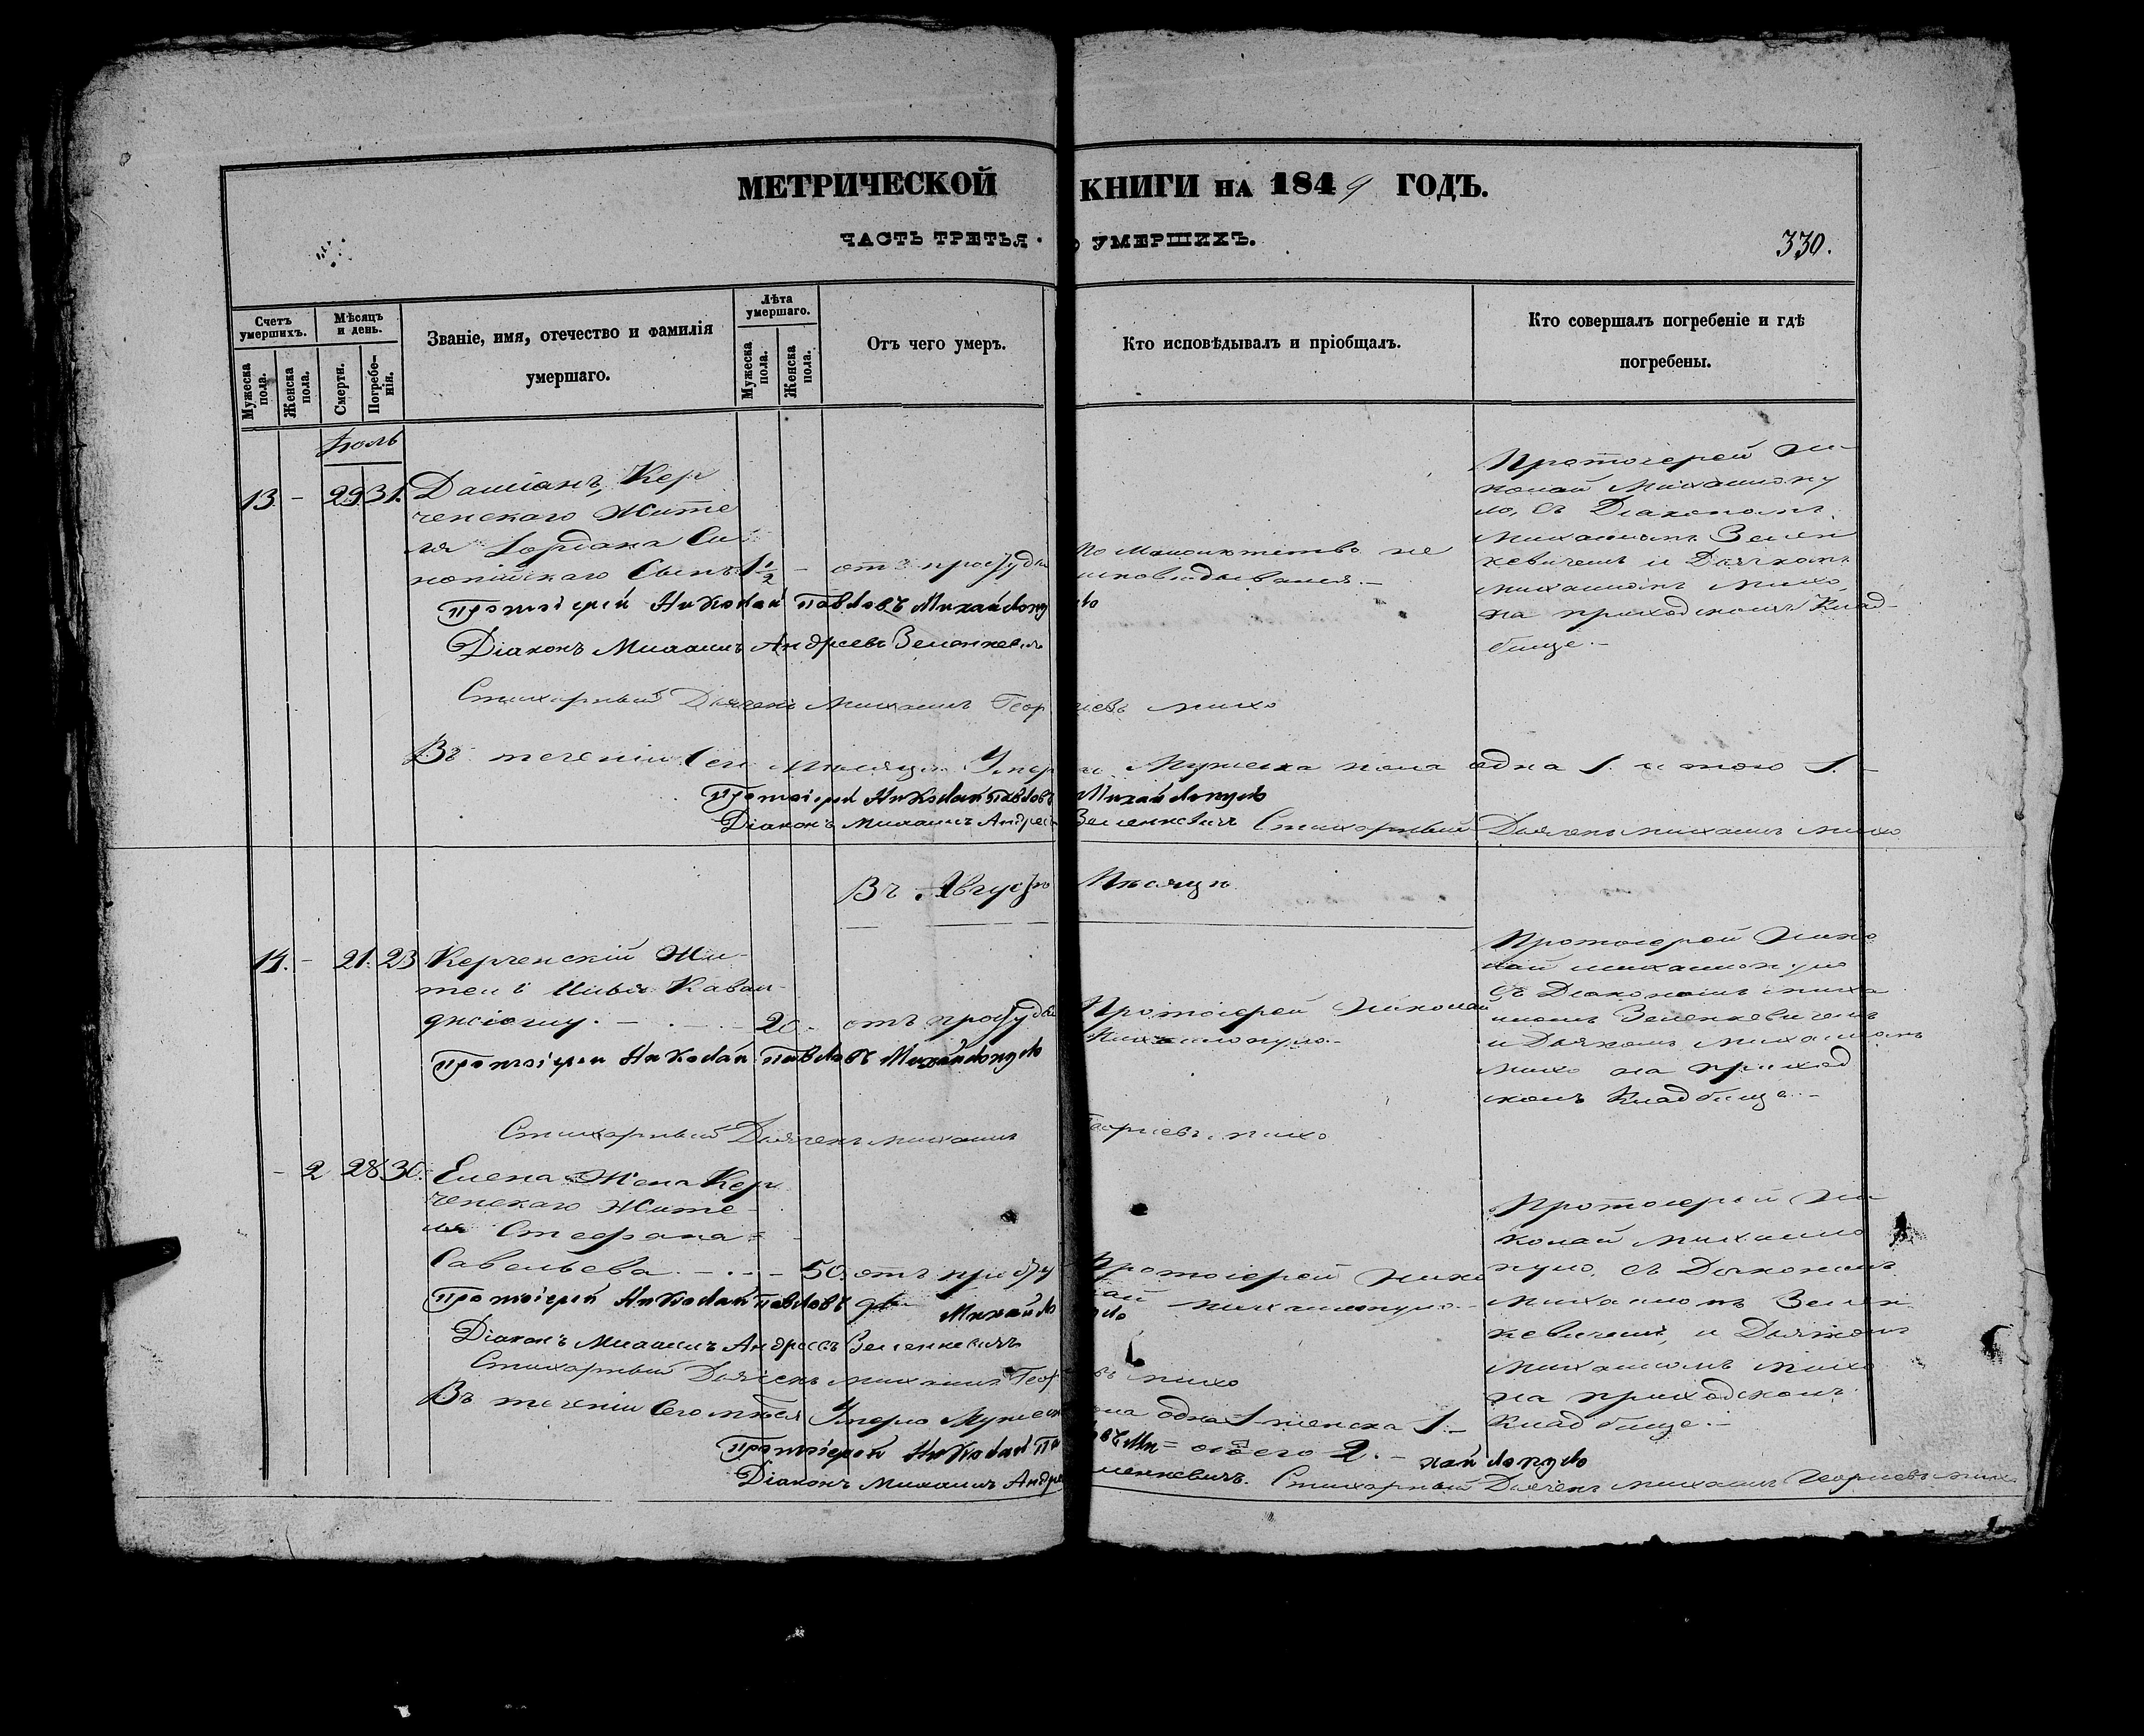 МЕТРИЧЕСКОЙ КНИГИ НА 1849 ГОДЪ.
ЧАСТЬ ТРЕТЬЯ О УМЕРШИХЪ.
330.
Счетъ умершихъ.
Мужеска пола.
Женска пола.
Мѣсяцъ и день.
Смерти.
Погребенія.
Званіе, имя, отечество и фамилія
умершаго.
Лѣта умершаго.
Мужеска пола.
Женска пола.
Отъ чего умеръ.
Кто исповѣдывалъ и пріобщалъ.
Кто совершалъ погребеніе и гдѣ
погребены.
Іюль
13. - 29 31. Даміанъ, Кер
ченскаго Жите
ля Іордана Си
нопійскаго Сынъ 1 1/2 - отъ простуды
По малолѣтству не
исповѣдывался.-
Протоіерей Ни
колай Михайлопу
ло, съ Діакономъ
Михаиломъ Зелен
кевичемъ и Дьячкомъ
Михаиломъ Михо
на приходскомъ Клад-
бище.-
Протоіерей Николай Павловъ Михайлопуло
Діаконъ Михаилъ Андреевъ Зеленкевичъ
Стихарный Дьячекъ Михаилъ Георгіевъ Михо
Въ теченіи Сего мѣсяца Умерло Мужеска пола одна 1. итого 1.-
Протоіерей Николай Павловъ Михайлопуло
Діаконъ Михаилъ Андреевъ Зеленкевичъ Стихарный Дьячекъ Михаилъ Михо
Въ Августѣ Мѣсяцѣ
14. - 21. 23 Керченскій Жи-
тель Илья Каван-
джіоглу. - . - 20. отъ простуды
Протоіерей Николай
Михайлопуло.-
Протоіерей Нико
лай Михайлопуло
съ Діакономъ Миха
иломъ Зеленкевичемъ
и Дьякомъ Михаиломъ
Михо на приход
скомъ Кладбище.-
Протоіерей Николай Павловъ Михайлопуло
Стихарный Дьячекъ Михаилъ Георгіевъ Михо
- 2 28. 30. Елена Жена Кер
ченскаго Жите-
ля Стефана
Савельева. - . - 50. отъ просту
ды
Протоіерей Нико
лай Михайлопуло.-
Протоіерей Ни
колай Михайло
пуло, съ Діакономъ
Михаиломъ Зелен
кевичемъ, и Дьякомъ
Михаиломъ Михо
на приходскомъ
Кладбище.-
Протоіерей Николай Павловъ Михайлопуло
Діаконъ Михаилъ Андреевъ Зеленкевичъ
Стихарный Дьячекъ Михаилъ Георгіевъ Михо
Въ теченіи Сего мѣсяца Умерло Мужеска пола одна 1 женска 1.-
обоего 2.-
Протоіерей Николай Павловъ Михайлопуло
Діаконъ Михаилъ Андреевъ Зеленкевичъ. Стихарный Дьячекъ Михаилъ Георгіевъ Михо